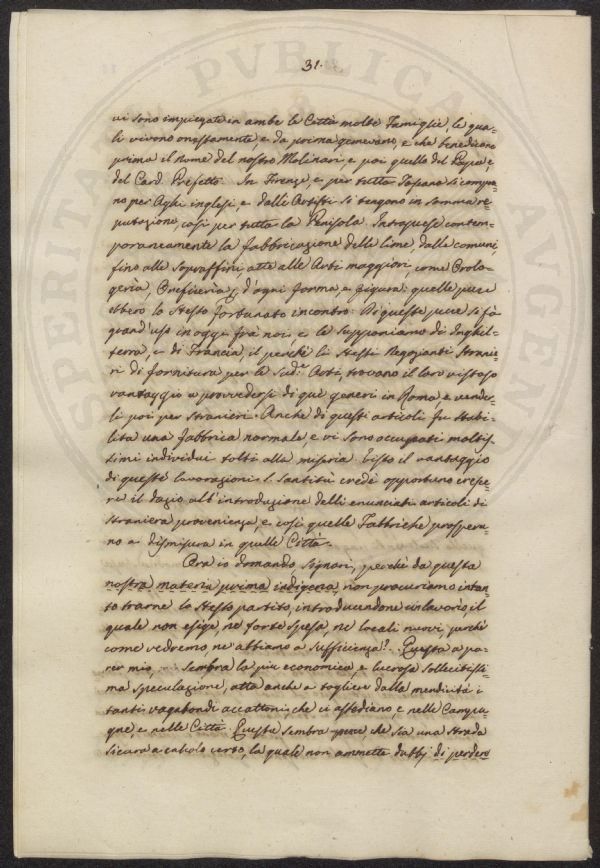 31.
vi sono impiegate in ambe le Città molte Famiglie, le qua-
li vivono onestamente, e da prima gemevano, e che benedicono
prima il nome del nostro Molinari, e poi quello del Papa, e
del Card. Prefetto. In Firenze, e per tutta Toscana si compra-
no per Aghi inglesi, e dalli Artisti si tengono in somma re-
putazione, così per tutta la Penisola. Intraprese contem-
poraneamente la fabbricazione delle lime, dalle comuni,
fino alle sopraffini, atte alle Arti maggiori, come Orolo-
geria, Orificieria, d'ogni forma e figura: quelle pure
ebbero lo stesso fortunato incontro: Di queste pure si fà
grand'uso in oggi frà noi, e le supponiamo di Inghil-
terra, e di Francia, il perchè li stessi Negozianti stranie-
ri di fornitura per le Sudᵉ Arti, trovano il loro vistoso
vantaggio a provvedersi di què generi in Roma, e vender-
li poi per stranieri. Anche di questi articoli fu stabi-
lita una fabbrica normale, e vi sono occupati moltis-
simi individui tolti alla miseria. Visto il vantaggio
di queste lavorazioni S. Santità credè opportuno cresce-
re il dazio all'introduzione delli enunciati articoli di
straniera provenienza, e così quelle Fabbriche prospera-
no a dismisura in quelle Città.
Ora io domando, Signori, perchè da questa
nostra materia prima indigena, non procuriamo intan-
to trarne lo stesso partito, introducendone un lavorio, il
quale non esige, nè forte spesa, nè locali nuovi, perchè
come vedremo, ne abbiamo a sufficienza? Questa a pa-
rer mio, sembra la più economica, e lucrosa sollecitissi-
ma speculazione, atta anche a togliere dalla mendicità i
tanti vagabondi accattoni, che ci assediano, e nelle Campa-
gne, e nelle Città. Questa sembra pure che sia una strada
sicura a calcolo certo, la quale non ammette dubbj di perdere